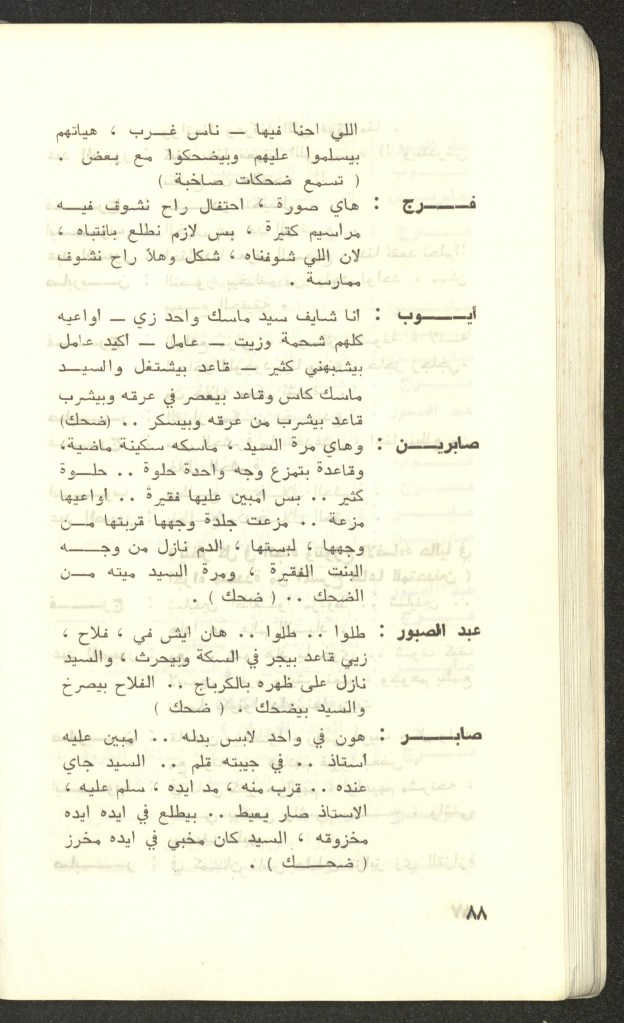 اللي احنا فيها — ناس غـرب ، هياتهم
بيسلموا عليهم وبيضحكوا مع بعض .
( تسمع ضحكات صاخبة )
فــــرج : هاي صورة ، احتفال راح نشوف فيــه
مراسيم كتيرة ، بس لازم نطلع بانتباه ،
لان اللي شوفناه ، شكل وهلأ راح نشوف
ممارسة .
أيــــوب : انا شايف سيد ماسك واحد زي — اواعيه
كلهم شحمة وزيت — عامل — اكيد عامل
بيشبهني كثير — قاعد بيشتغل والسيــد
ماسك كاس وقاعد بيعصر في عرقه وبيشرب
قاعد بيشرب من عرقه وبيسكر .. (ضحك)
صابريــــن : وهاي مرة السيد ، ماسكه سكينة ماضية،
وقاعدة بتمزع وجه واحدة حلوة .. حلــوة
كثير .. بس امبين عليها فقيرة .. اواعيها
مزعة .. مزعت جلدة وجهها قربتها مــن
وجهها ، لبستها ، الدم نازل من وجــــه
البنت الفقيرة ، ومرة السيد ميته مــن
الضحك .. ( ضحك ) .
عبد الصبور : طلوا .. طلوا .. هان ايش في ، فلاح ،
زيي قاعد بيجر في السكة وبيحرث ، والسيد
نازل على ظهره بالكرباج .. الفلاح بيصرخ
والسيد بيضحك . ( ضحك )
صابــــــر : هون في واحد لابس بدله .. امبين عليه
استاذ .. في جيبته قلم .. السيد جاي
عنده .. قرب منه ، مد ايده ، سلم عليه ،
الاستاذ صار يعيط .. بيطلع في ايده ايده
مخزوقه ، السيد كان مخبي في ايده مخرز
( ضحــــك ) .
٨٨